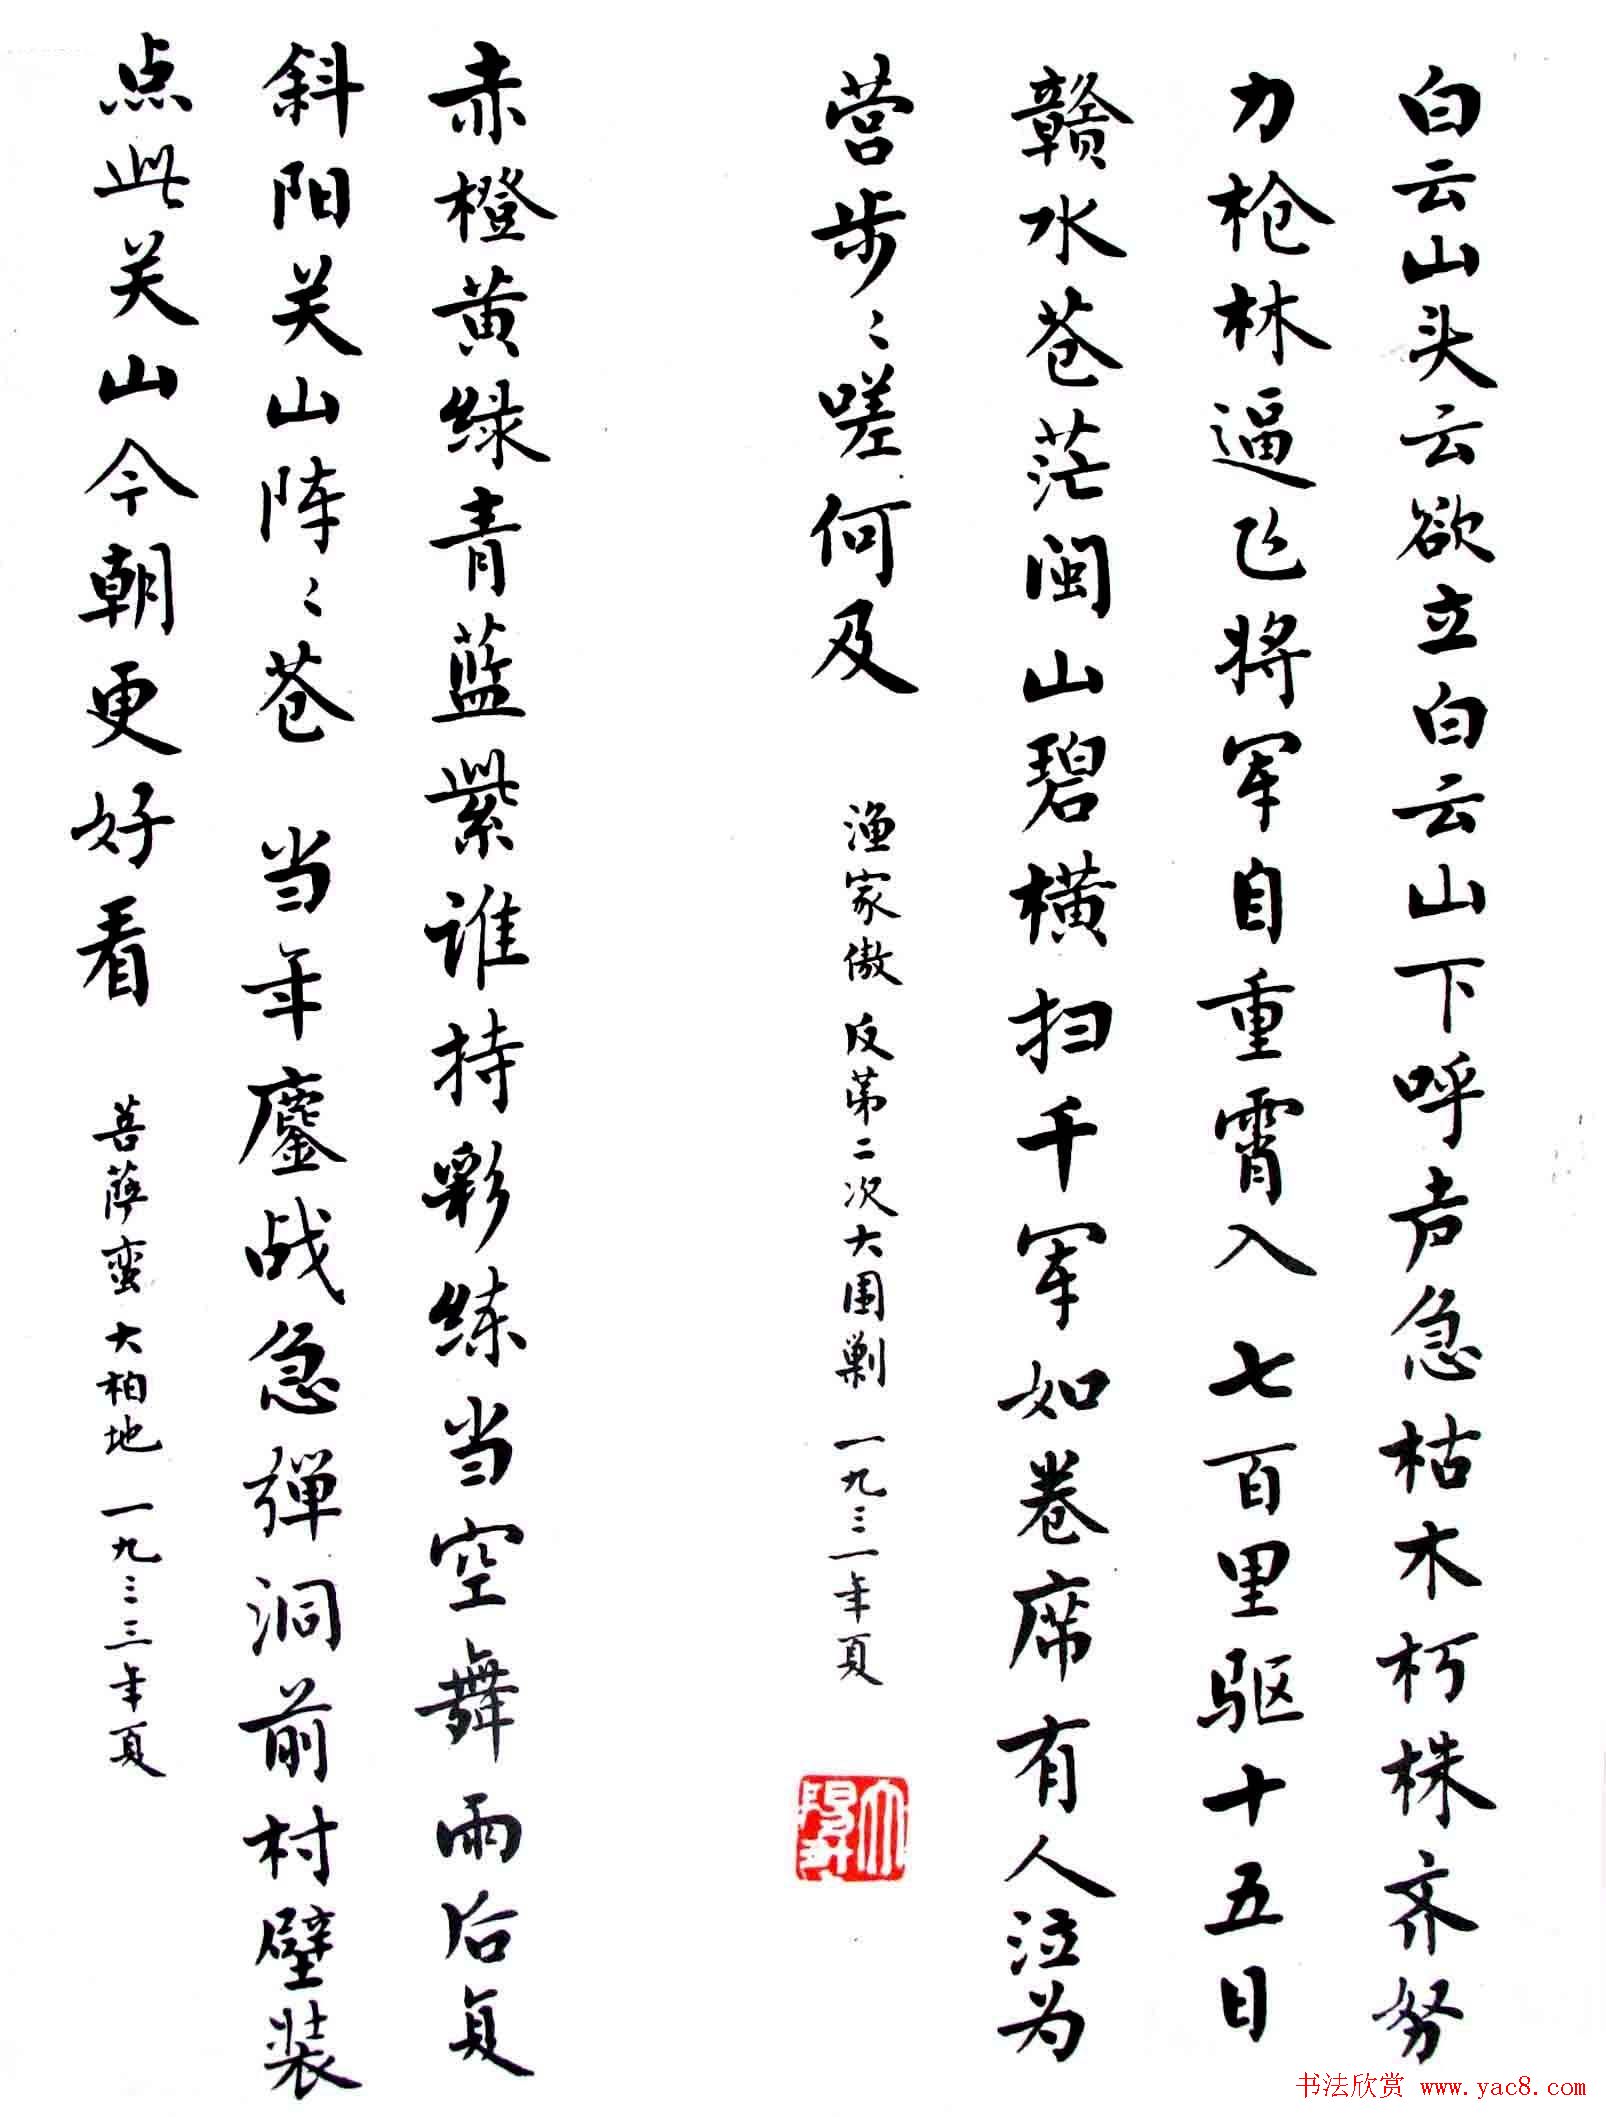 白云山头云欲立白云山下呼声急枯木朽株齐努
力枪林逼飞将军自重霄入七百里驱十五日
赣水苍茫闽山碧横扫千军如卷席有人泣为
营步〻嗟何及
渔家傲 反第二次大围剿 一九三一年夏
赤橙黄绿青蓝紫谁持彩练当空舞雨后复
斜阳关山阵〻苍 当年鏖战急弹洞前村壁装
点此关山今朝更好看
菩萨蛮 大柏地 一九三三年夏
书法欣赏 www.yac8.com